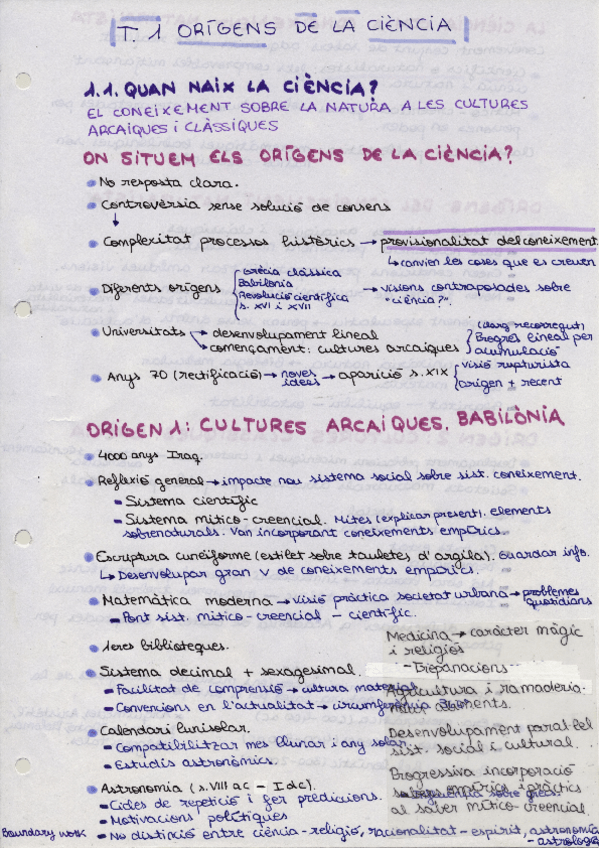 T.1 ORÍGENS DE LA CIÈNCIA
1.1. QUAN NAIX LA CIÈNCIA?
EL CONEIXEMENT SOBRE LA NATURA A LES CULTURES
ARCAIQUES I CLÀSSIQUES
ON SITUEM ELS ORÍGENS DE LA CIÈNCIA?
• No resposta clara.
• Controvèrsia sense solució de consens
↓
• Complexitat processos històrics → provisionalitat del coneixement.
↳ canvien les coses que es creuen
• Diferents orígens { Grècia clàssica
Babilònia
Revolució científica
s. XVI i XVII
→ visions contraposades sobre
"ciència?"
• Universitats → desenvolupament lineal
→ començament: cultures arcaiques
{ (clara, recorregut)
Progrés lineal per
acumulació
• Anys 70 (rectificació) → noves
idees → aparició s. XIX
{ visió rupturista
origen + recent
ORIGEN 1: CULTURES ARCAIQUES. BABILÒNIA
• 4000 anys Iraq.
• Reflexió general → impacte nou sistema social sobre sist. coneixement.
- Sistema científic
- Sistema mític-creencial. Mites (explicar present), elements
sobrenaturals. Van incorporant coneixements empírics.
• Escriptura cuneïforme (estilet sobre tauletes d'argila). Guardar info.
↳ Desenvolupar gran v de coneixements empírics.
• Matemàtica moderna → visió pràctica societat urbana → problemes
quotidians
- Pont sist. mític-creencial - científic.
• 1eres biblioteques.
• Sistema decimal + sexagesimal.
- Facilitat de comprensió → cultura material
- Convencions en l'actualitat → circumferència
• Calendari lunisolar.
- Compatibilitzar mes lunar i any solar
- Estudis astronòmics.
• Astronomia (s. VIII aC - I dC).
- Cicles de repetició i fer prediccions.
- Motivacions polítiques
boundary work
- No distinció entre ciència-religió, racionalitat-esperit, astronomia
- astrologia
Medicina → caràcter màgic
i religiós
- Trepanacions
Agricultura i ramaderia.
Desenvolupament paral·lel
sist. social i cultural.
Progressiva incorporació
sabers empírics i pràctics
al saber mític-creencial.